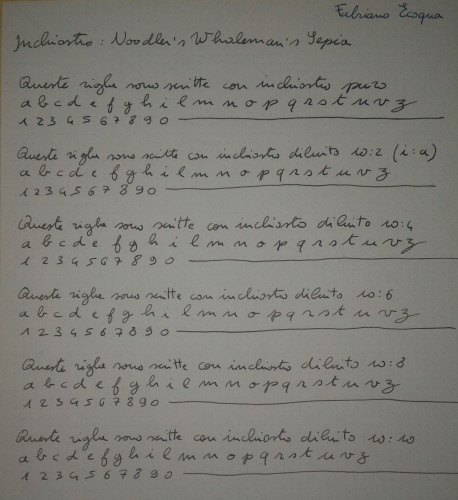 Fabriano Ecoqua
Inchiostro: Noodler's Whaleman's Sepia
Queste righe sono scritte con inchiostro puro
a b c d e f g h i l m n o p q r s t u v z
1 2 3 4 5 6 7 8 9 0
Queste righe sono scritte con inchiostro diluito 10:2 (i:a)
a b c d e f g h i l m n o p q r s t u v z
1 2 3 4 5 6 7 8 9 0
Queste righe sono scritte con inchiostro diluito 10:4
a b c d e f g h i l m n o p q r s t u v z
1 2 3 4 5 6 7 8 9 0
Queste righe sono scritte con inchiostro diluito 10:6
a b c d e f g h i l m n o p q r s t u v z
1 2 3 4 5 6 7 8 9 0
Queste righe sono scritte con inchiostro diluito 10:8
a b c d e f g h i l m n o p q r s t u v z
1 2 3 4 5 6 7 8 9 0
Queste righe sono scritte con inchiostro diluito 10:10
a b c d e f g h i l m n o p q r s t u v z
1 2 3 4 5 6 7 8 9 0